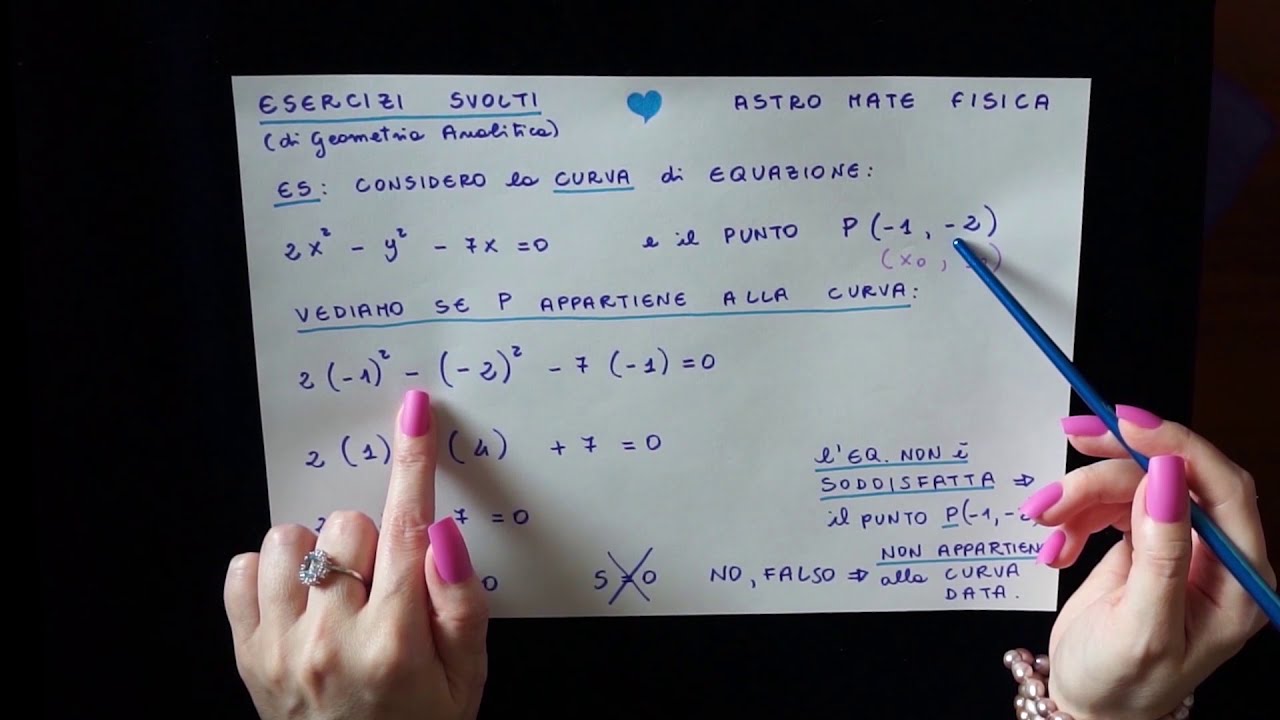 ESERCIZI SVOLTI
ASTRO MATE FISICA
(di Geometria Analitica)
ES: CONSIDERO la CURVA di EQUAZIONE:
2x² - y² - 7x = 0 e il PUNTO P(-1, -2)
(x₀,
VEDIAMO SE P APPARTIENE ALLA CURVA:
2(-1)² - (-2)² - 7(-1) = 0
2(1) (4) + 7 = 0
7 = 0
0
5 = 0 NO, FALSO ⇒
l'EQ. NON È
SODDISFATTA ⇒
il PUNTO P(-1, -2
NON APPARTIEN
alla CURVA
DATA.